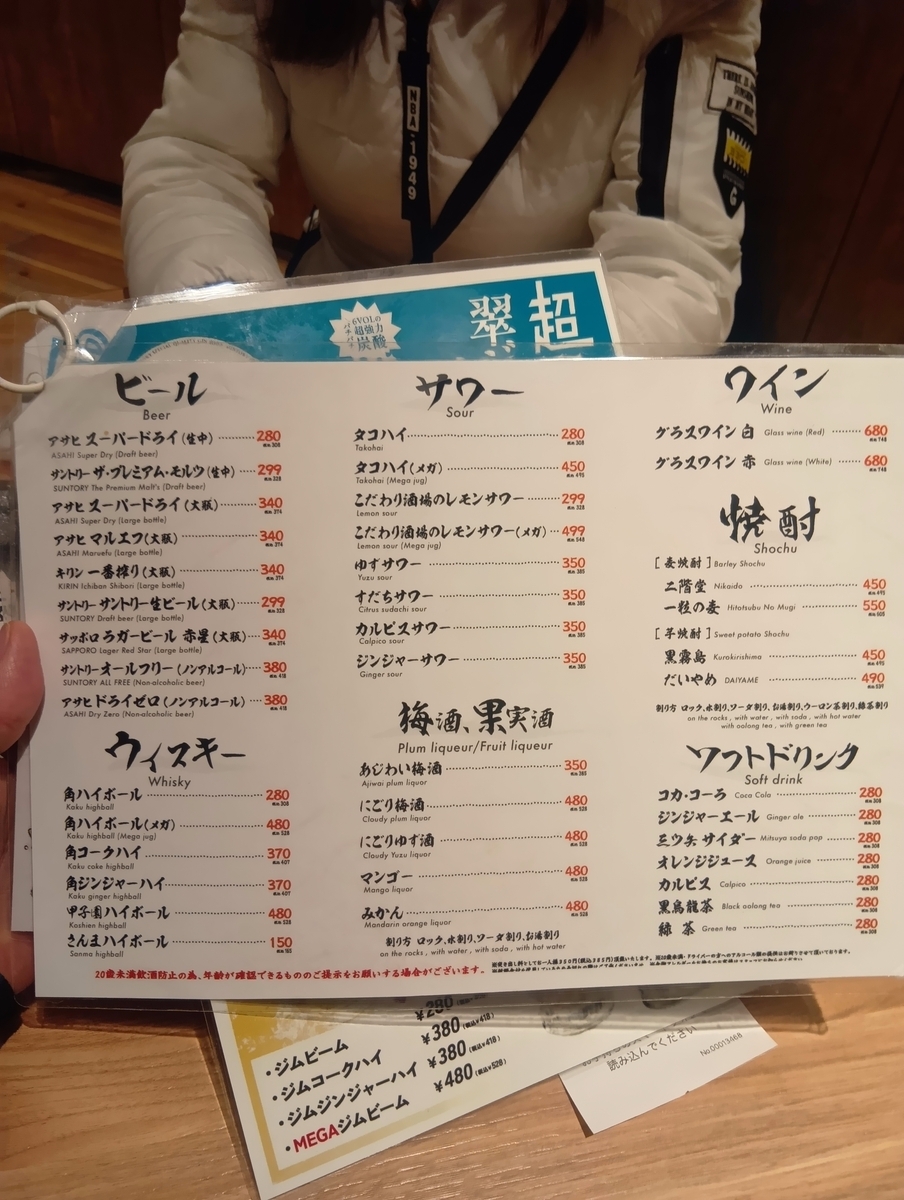 NBA-1949
THERE IS
IN MY
G
6VOLの
超強力
炭酸
超
翠
ビール
Beer
アサヒ スーパードライ(生中) 280
税込308
ASAHI Super Dry (Draft beer)
サントリー ザ・プレミアム・モルツ(生中) 299
税込328
SUNTORY The Premium Malt's (Draft beer)
アサヒ スーパードライ(大瓶) 340
税込374
ASAHI Super Dry (Large bottle)
アサヒ マルエフ(大瓶) 340
税込374
ASAHI Maruefu (Large bottle)
キリン 一番搾り(大瓶) 340
税込374
KIRIN Ichiban Shibori (Large bottle)
サントリー サントリー生ビール(大瓶) 299
税込328
SUNTORY Draft beer (Large bottle)
サッポロ ラガービール 赤星(大瓶) 340
税込374
SAPPORO Lager Red Star (Large bottle)
サントリー オールフリー(ノンアルコール) 380
税込418
SUNTORY ALL FREE (Non-alcoholic beer)
アサヒ ドライゼロ(ノンアルコール) 380
税込418
ASAHI Dry Zero (Non-alcoholic beer)
ウィスキー
Whisky
角ハイボール 280
税込308
Kaku highball
角ハイボール(メガ) 480
税込528
Kaku highball (Mega jug)
角コークハイ 370
税込407
Kaku coke highball
角ジンジャーハイ 370
税込407
Kaku ginger highball
甲子園ハイボール 480
税込528
Koshien highball
さんまハイボール 150
税込165
Sanma highball
サワー
Sour
タコハイ 280
税込308
Takohai
タコハイ(メガ) 450
税込495
Takohai (Mega jug)
こだわり酒場のレモンサワー 299
税込328
Lemon sour
こだわり酒場のレモンサワー(メガ) 499
税込548
Lemon sour (Mega jug)
ゆずサワー 350
税込385
Yuzu sour
すだちサワー 350
税込385
Citrus sudachi sour
カルピスサワー 350
税込385
Calpico sour
ジンジャーサワー 350
税込385
Ginger sour
梅酒、果実酒
Plum liqueur/Fruit liqueur
あじわい梅酒 350
税込385
Ajiwai plum liquor
にごり梅酒 480
税込528
Cloudy plum liquor
にごりゆず酒 480
税込528
Cloudy Yuzu liquor
マンゴー 480
税込528
Mango liquor
みかん 480
税込528
Mandarin orange liquor
割り方 ロック、水割り、ソーダ割り、お湯割り
on the rocks , with water , with soda , with hot water
ワイン
Wine
グラスワイン 白 Glass wine (Red) 680
税込748
グラスワイン 赤 Glass wine (White) 680
税込748
焼酎
Shochu
[麦焼酎] Barley Shochu
二階堂 Nikaido 450
税込495
一粒の麦 Hitotsubu No Mugi 550
税込605
[芋焼酎] Sweet potato Shochu
黒霧島 Kurokirishima 450
税込495
だいやめ DAIYAME 490
税込539
割り方 ロック、水割り、ソーダ割り、お湯割り、ウーロン茶割り、緑茶割り
on the rocks , with water , with soda , with hot water
with oolong tea , with green tea
ソフトドリンク
Soft drink
コカ・コーラ Coca Cola 280
税込308
ジンジャーエール Ginger ale 280
税込308
三ツ矢 サイダー Mitsuya soda pop 280
税込308
オレンジジュース Orange juice 280
税込308
カルピス Calpico 280
税込308
黒烏龍茶 Black oolong tea 280
税込308
緑茶 Green tea 280
税込308
20歳未満飲酒防止の為、年齢が確認できるもののご提示をお願いする場合がございます。
¥280
・ジムビーム ¥380(税込¥418)
・ジムコークハイ ¥380(税込¥418)
・ジムジンジャーハイ ¥480(税込¥528)
・MEGAジムビーム
読み込んでください
No.00013468